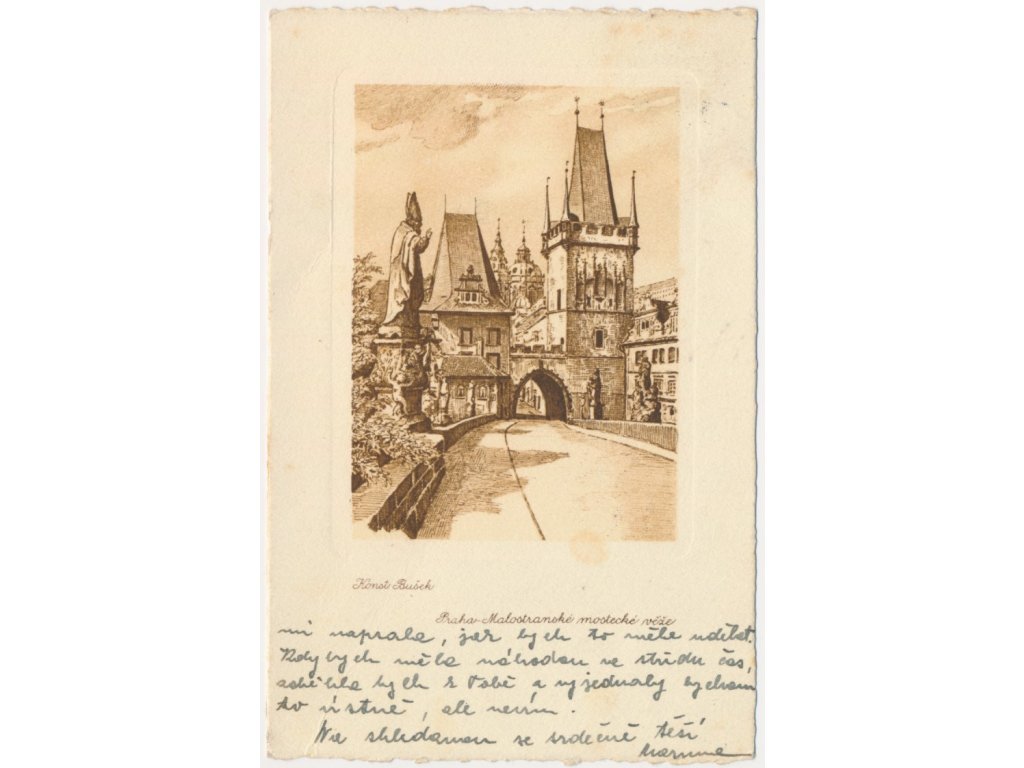 Konst Bušek
Praha-Malostranské mostecké věže
mi napsala, jak bych to měla udělat.
Kdybych měla náhodou ve středu čas,
zaběhla bych k Tobě a vyjednaly bychom
to ústně, ale nevím.
Na shledanou se srdečně těší